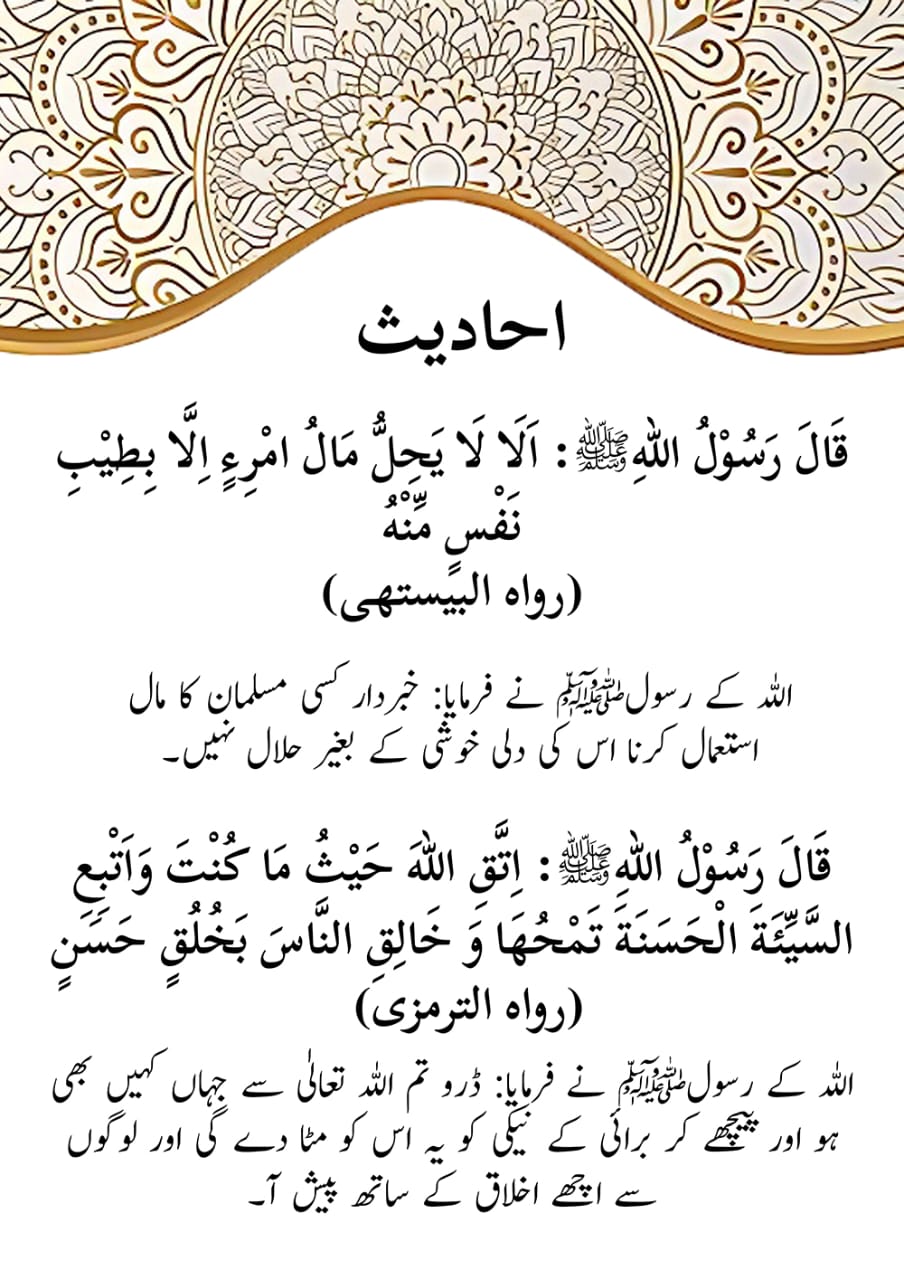 احادیث
قَالَ رَسُوْلُ اللهِﷺ: اَلَا لَا يَحِلُّ مَالُ امْرِءٍ اِلَّا بِطِيْبِ
نَفْسٍ مِّنْهُ
(رواه البيستهى)
اللہ کے رسولﷺ نے فرمایا: خبردار کسی مسلمان کا مال
استعمال کرنا اس کی دلی خوشی کے بغیر حلال نہیں۔
قَالَ رَسُوْلُ اللهِﷺ: اِتَّقِ اللهَ حَيْثُ مَا كُنْتَ وَاَتْبِعِ
السَّيِّئَةَ الْحَسَنَةَ تَمْحُهَا وَ خَالِقِ النَّاسَ بَخُلُقٍ حَسَنٍ
(رواه الترمزى)
اللہ کے رسولﷺ نے فرمایا: ڈرو تم اللہ تعالیٰ سے جہاں کہیں بھی
ہو اور پیچھے کر برائی کے نیکی کو یہ اس کو مٹا دے گی اور لوگوں
سے اچھے اخلاق کے ساتھ پیش آ۔